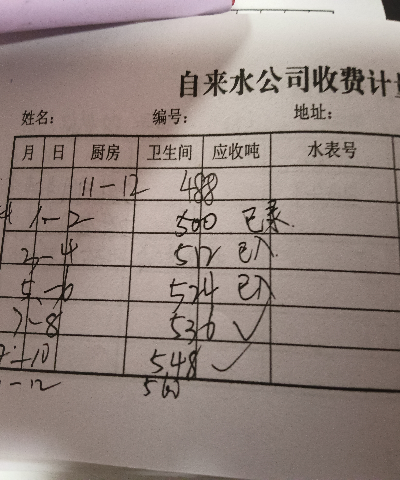 自来水公司收费计
姓名: 编号: 地址:
月 日 厨房 卫生间 应收吨 水表号
11-12 488
1-2 500 已录
3-4 512 已入
5-6 524 已入
7-8 536 ✓
-10 548 ✓
-12 560